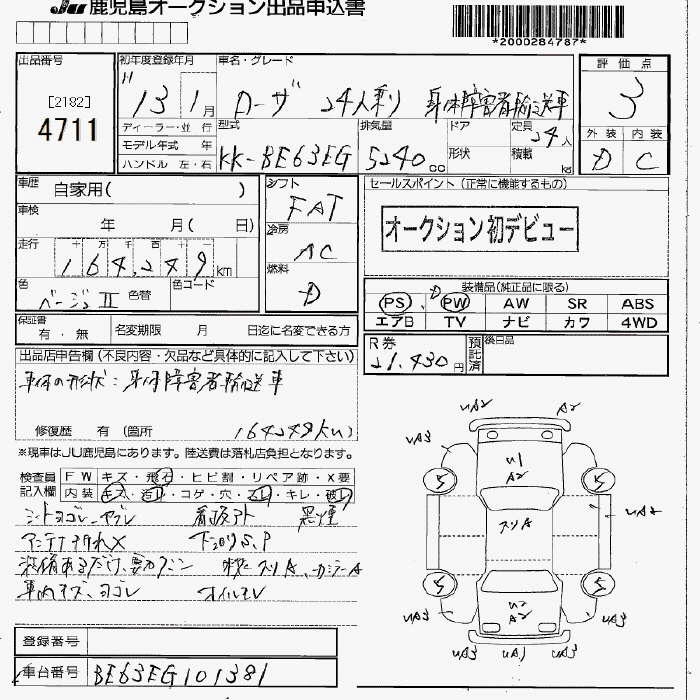 JU 鹿児島オークション出品申込書
*2000284787*
出品番号
[2182]
4711
初年度登録年月
H 13 1月
車名・グレード
ローザ 24人乗り 身体障害者輸送車
評価点
3
外装 内装
D C
ディーラー・並行
モデル年式 年
ハンドル 左・右
型式
KK-BE63EG
排気量
5240cc
ドア
形状
定員
24人
積載 kg
車歴
自家用( )
車検
年 月( 日)
走行
十 万 千 百 十 一
164,249km
色
ベージュII
色替
色コード
シフト
FAT
冷房
AC
燃料
D
セールスポイント(正常に機能するもの)
オークション初デビュー
装備品(純正品に限る)
PS PW AW SR ABS
エアB TV ナビ カワ 4WD
保証書
有・無
名変期限 月 日迄に名変できる方
R券
21,430円
預託済
後日品
出品店申告欄(不良内容・欠品など具体的に記入して下さい)
車体の形状:身体障害者輸送車
修復歴 有(箇所
164249km)
※現車はJU鹿児島にあります。陸送費は落札店負担となります。
検査員記入欄
FW キズ・飛石・ヒビ割・リペア跡・X要
内装 ・コゲ・穴・スレ・キレ・破レ
シートヨゴレ、ヤブレ 看板アト 黒煙
アンテナ折れX 下回りS,P
車内キズ、ヨゴレ オイルモレ
UA2 A2
UA3 UA3
5 5
U1
A2
スリA
UA2
5 5
U2
A2
UA3 UA3
UA3 UA1 UA3
登録番号
車台番号
BE63EG101381